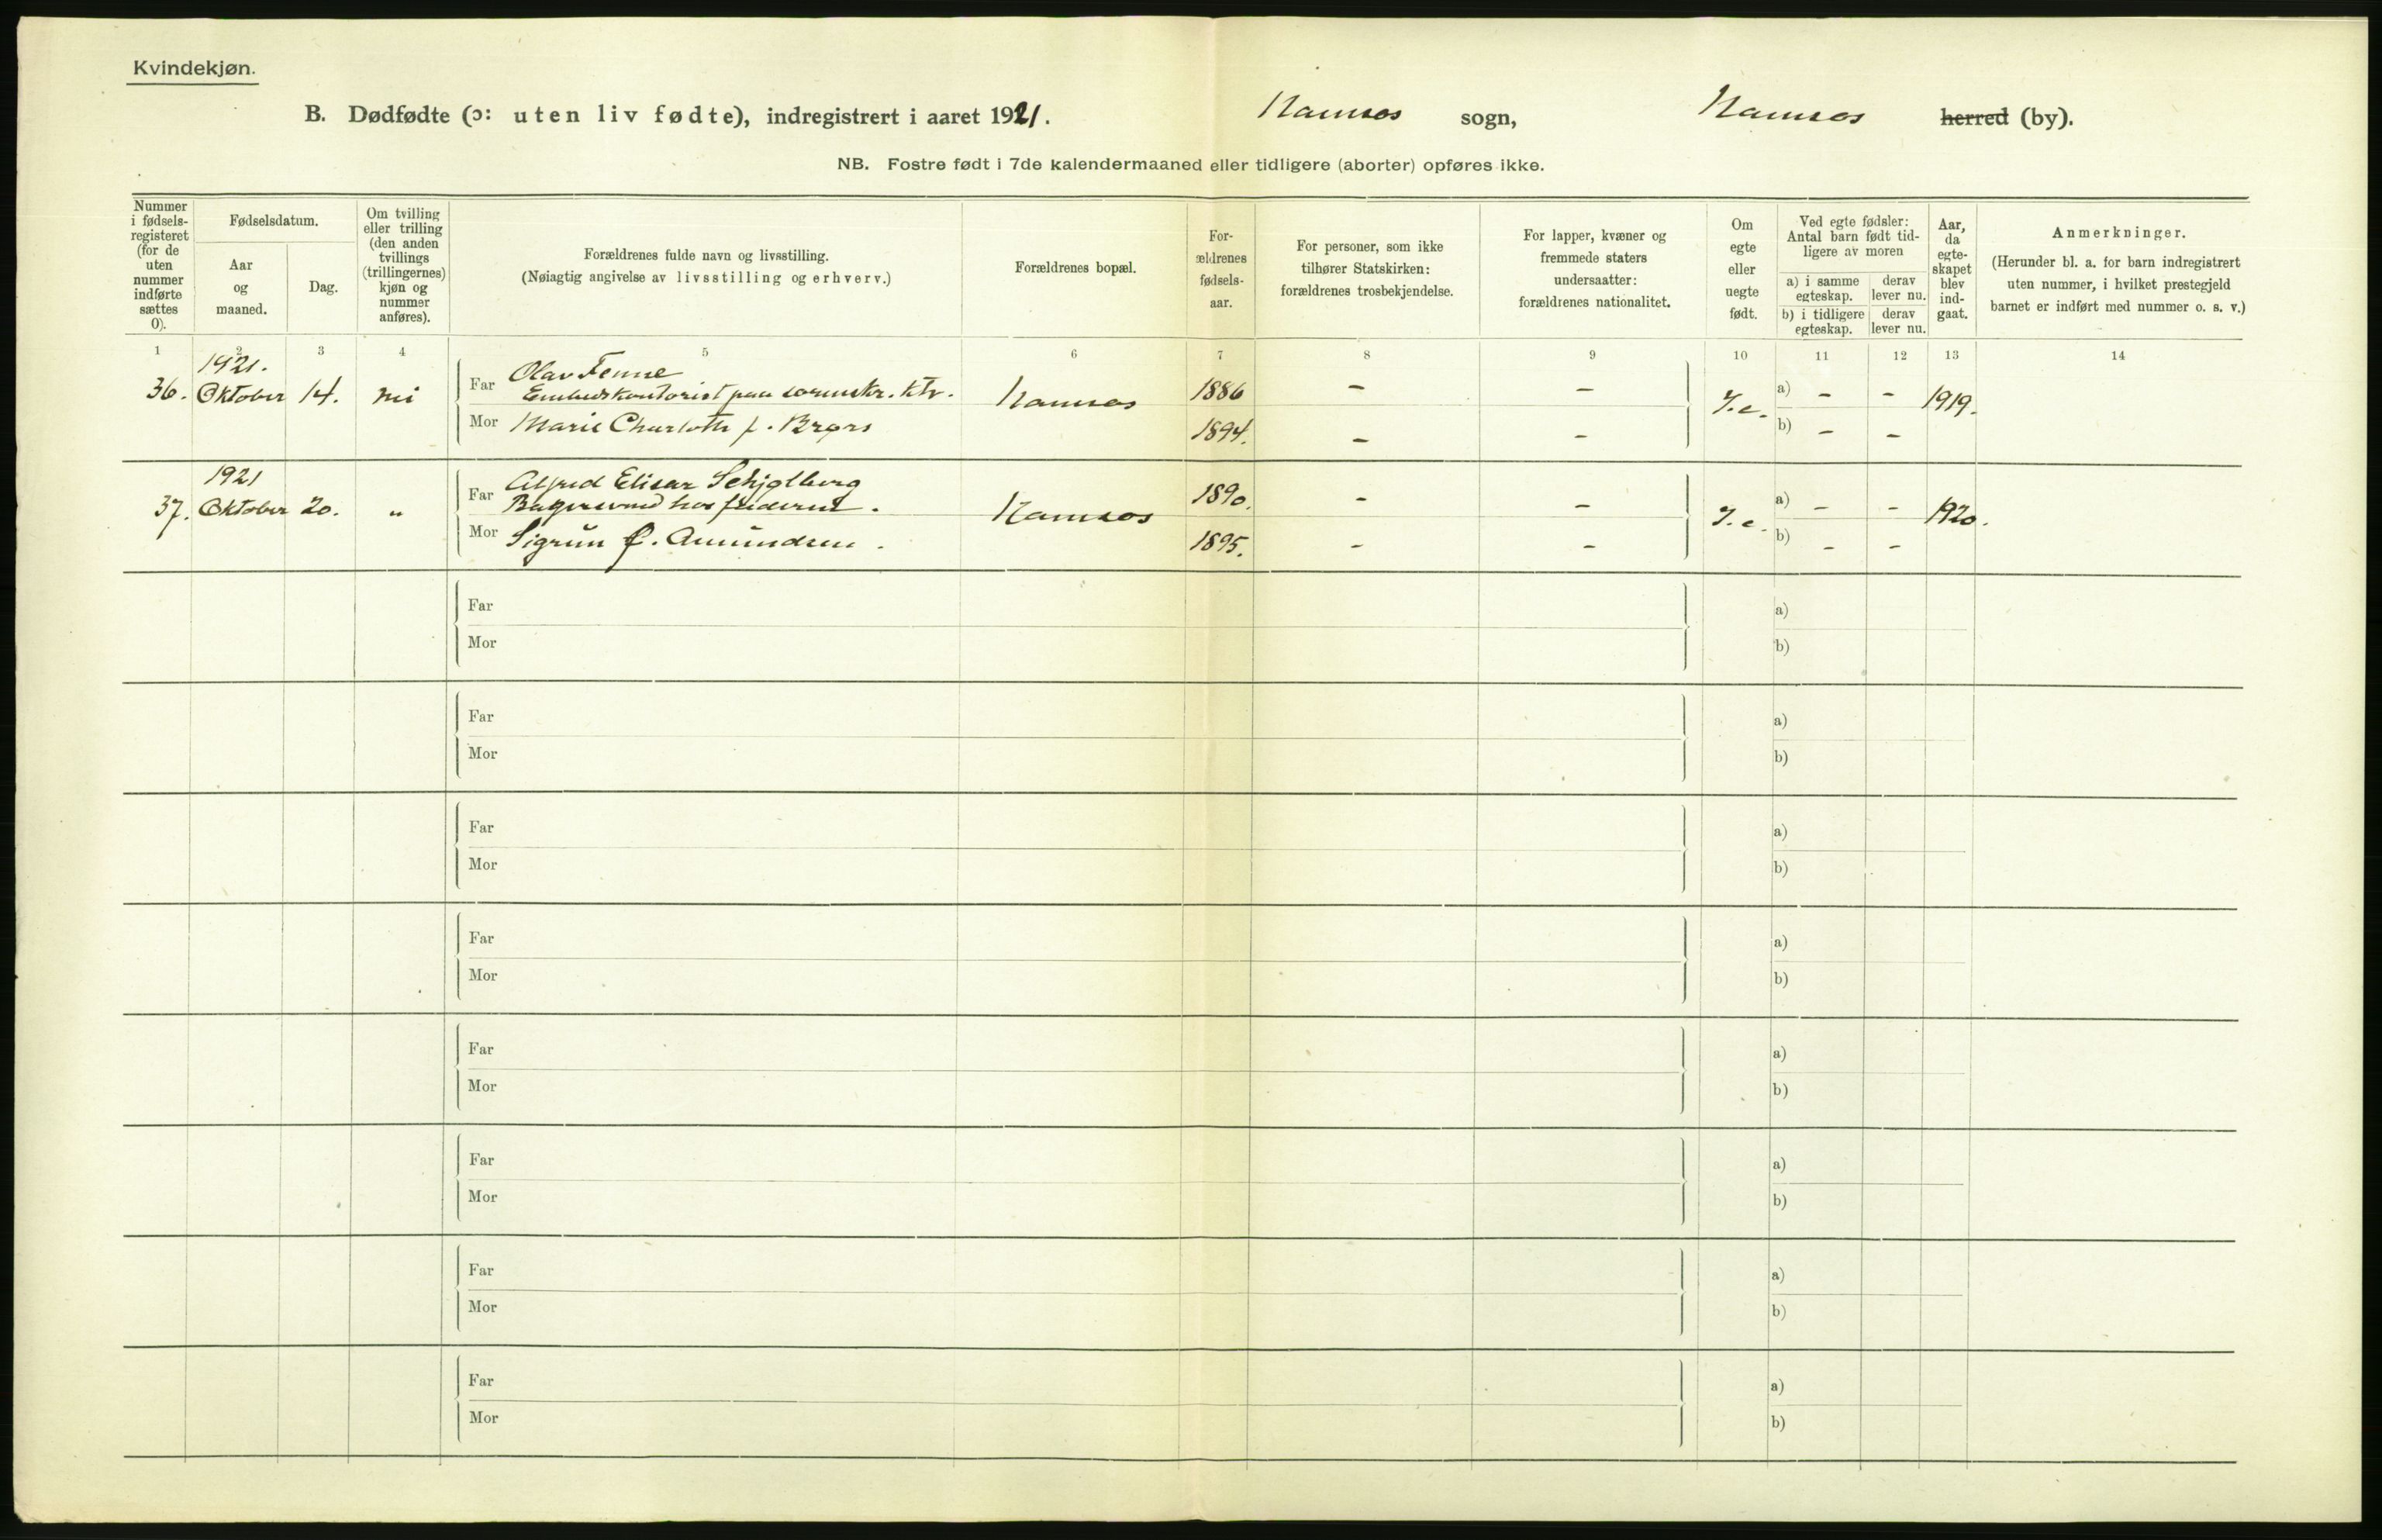 Kvindekjøn.
B. Dødfødte (ɔ: uten liv fødte), indregistrert i aaret 1921. Namsos sogn, Namsos herred (by).
NB. Fostre født i 7de kalendermaaned eller tidligere (aborter) opføres ikke.
Nummer
i fødsels-
registeret
(for de
uten
nummer
indførte
sættes
0).
Fødselsdatum.
Aar
og
maaned.
Dag.
Om tvilling
eller trilling
(den anden
tvillings
(trillingernes)
kjøn og
nummer
anføres).
Forældrenes fulde navn og livsstilling.
(Nøiagtig angivelse av livsstilling og erhverv.)
Forældrenes bopæl.
For-
ældrenes
fødsels-
aar.
For personer, som ikke
tilhører Statskirken:
forældrenes trosbekjendelse.
For lapper, kvæner og
fremmede staters
undersaatter:
forældrenes nationalitet.
Om
egte
eller
uegte
født.
Ved egte fødsler:
Antal barn født tid-
ligere av moren
a) i samme
egteskap.
derav
lever nu.
b) i tidligere
egteskap.
derav
lever nu.
Aar,
da
egte-
skapet
blev
ind-
gaat.
Anmerkninger.
(Herunder bl. a. for barn indregistrert
uten nummer, i hvilket prestegjeld
barnet er indført med nummer o. s. v.)
1 2 3 4 5 6 7 8 9 10 11 12 13 14
1921.
36. Oktober 14. nei
Far Olav Fenne
paa sorenskr. ktr. Namsos 1886 – – a) – – 1919.
Mor Marie Charlotte f. 1894. – – b) – –
1921
37. Oktober 20. „
Far Alfred Elisar Schjølberg
Bagersvend hos Namsos 1890. – – a) – – 1920.
Mor Sigrun f. Amundsen. 1895. – – b) – –
Far a)
Mor b)
Far a)
Mor b)
Far a)
Mor b)
Far a)
Mor b)
Far a)
Mor b)
Far a)
Mor b)
Far a)
Mor b)
Far a)
Mor b)